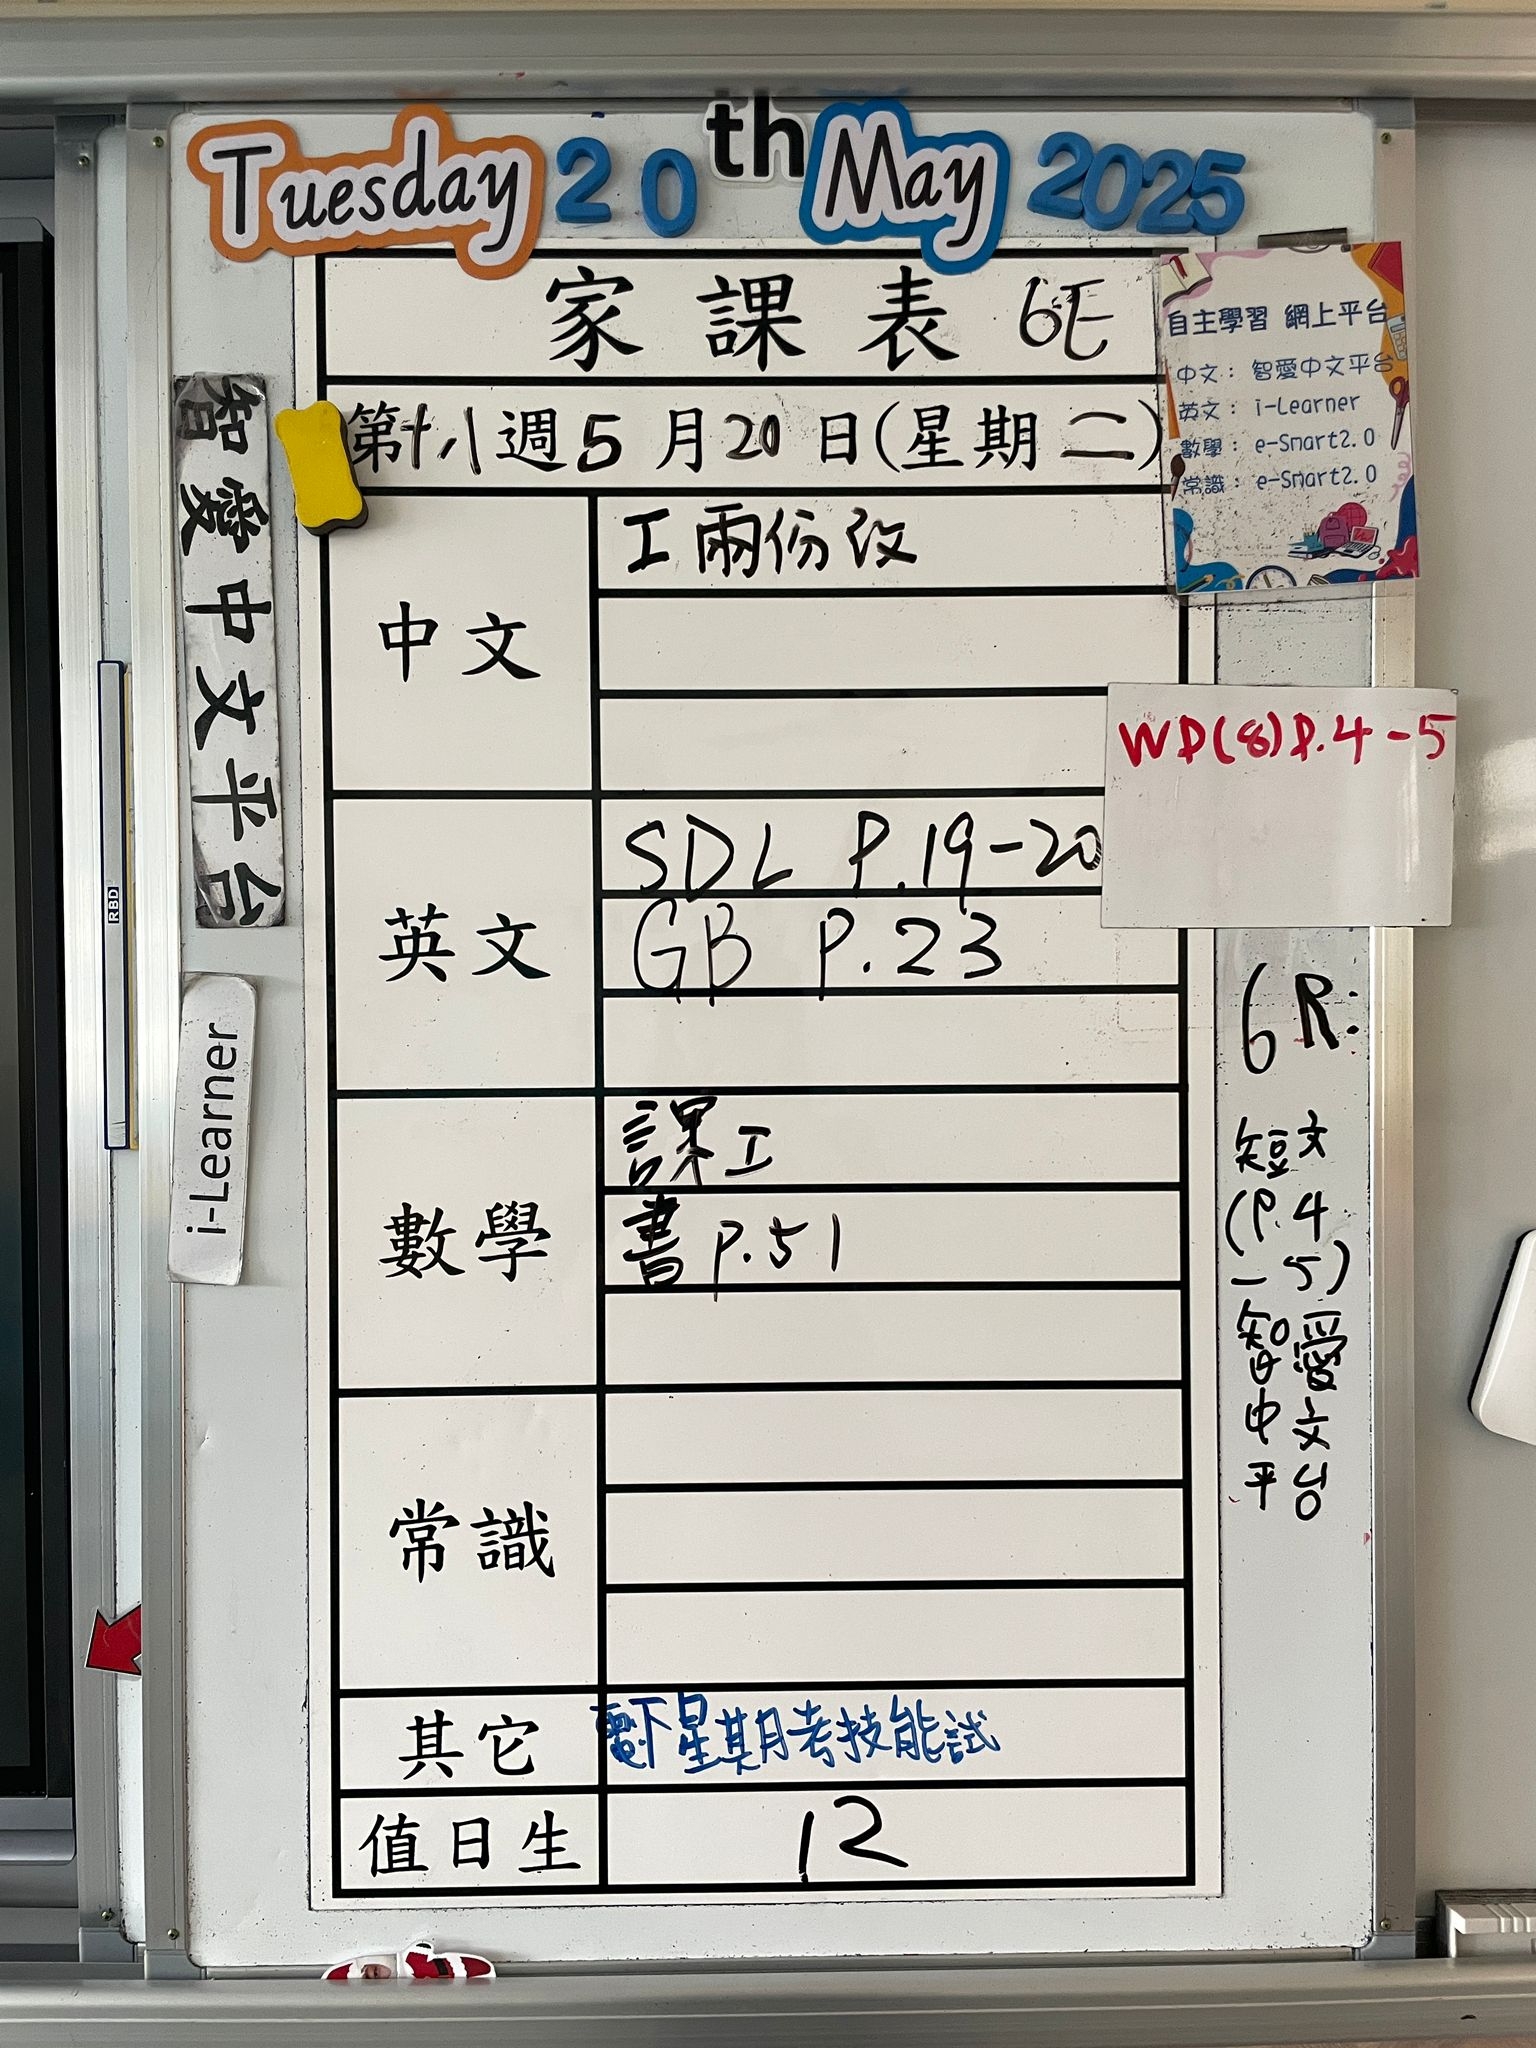 Tuesday 20th May 2025
家課表 6E
第十八週5月20日(星期二)
自主學習 網上平台
中文： 智愛中文平台
英文： i-Learner
數學： e-Smart2.0
常識： e-Smart2.0
智愛中文平台
i-Learner
RBD
中文
工兩份改
WP(8)P.4-5
英文
SDL P.19-20
GB P.23
數學
課工
書p.51
常識
其它
電下星期考技能試
值日生
12
6R:
短文
(P.4
-5)
智愛
中文
平台